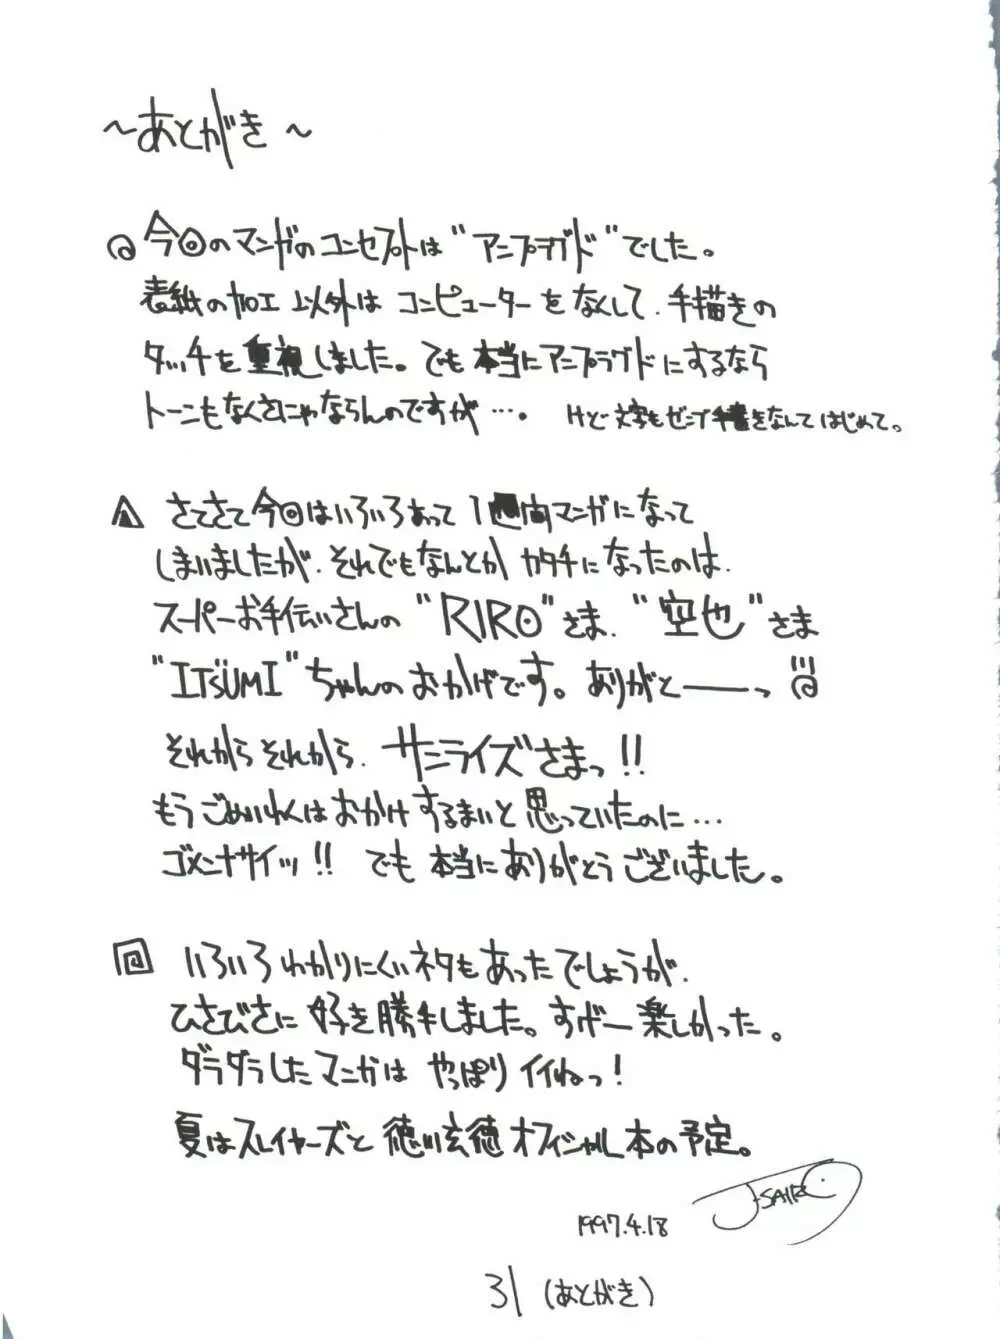 ～あとがき～
今回のマンガのコンセプトは“アンプラグド”でした。
表紙の加工以外はコンピューターをなくして、手描きの
タッチを重視しました。でも本当にアンプラグドにするなら
トーンもなくさにゃならんのですが…。 けど文字もゼンブ手書きなんてはじめて。
さてさて今回はいろいろあって1週間マンガになって
しまいましたが、それでもなんとかカタチになったのは、
スーパーお手伝いさんの“RIRO”さま、“空也”さま
“ITSUMI”ちゃんのおかげです。ありがと――っ!!!
それからそれから、サンライズ”さまっ!!
もうごめいわくはおかけするまいと思っていたのに…
ゴメンナサイッ!! でも本当にありがとうございました。
いろいろわかりにくいネタもあったでしょうが、
ひさびさに好き勝手しました。すげー楽しかった。
ダラダラしたマンガはやっぱりイイねっ!
夏はスレイヤーズと徳川玄徳オフィシャル本の予定。
1997.4.18 J-SAIRO
31 (あとがき)